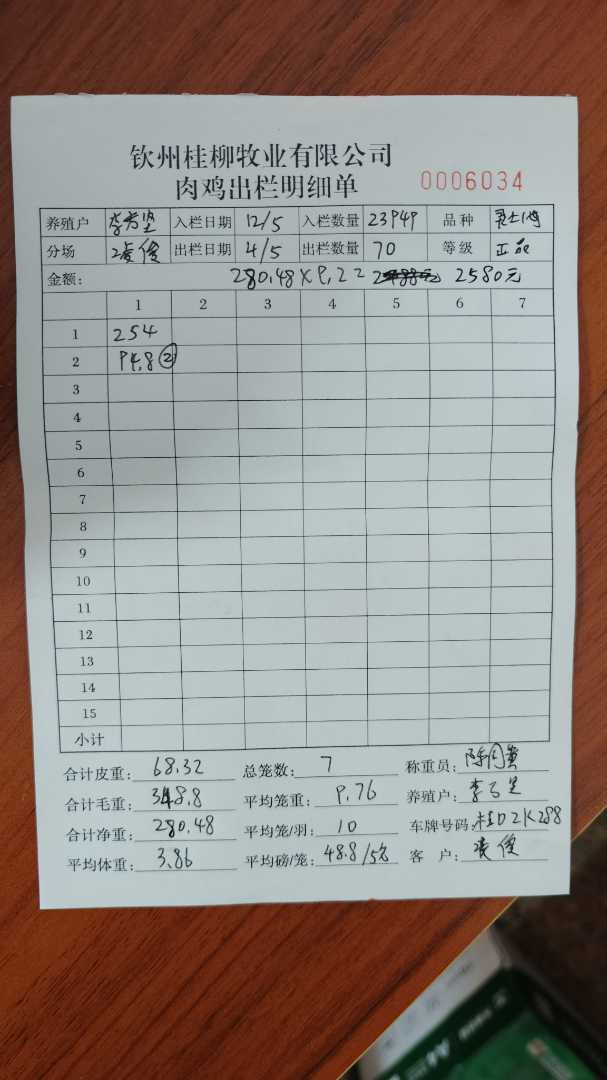 钦州桂柳牧业有限公司
肉鸡出栏明细单 0006034
养殖户 入栏日期 12/5 入栏数量 23949 品种
分场 凌俊 出栏日期 4/5 出栏数量 70 等级 正品
金额: 280.48×9.2= 2580元
1 2 3 4 5 6 7
1 254
2 94.8 ②
3
4
5
6
7
8
9
10
11
12
13
14
15
小计
合计皮重: 68.32 总笼数: 7 称重员:
合计毛重: 348.8 平均笼重: 9.76 养殖户:
合计净重: 280.48 平均笼/羽: 10 车牌号码: 桂D2K288
平均体重: 3.86 平均磅/笼: 48.8/5笼 客户: 凌俊